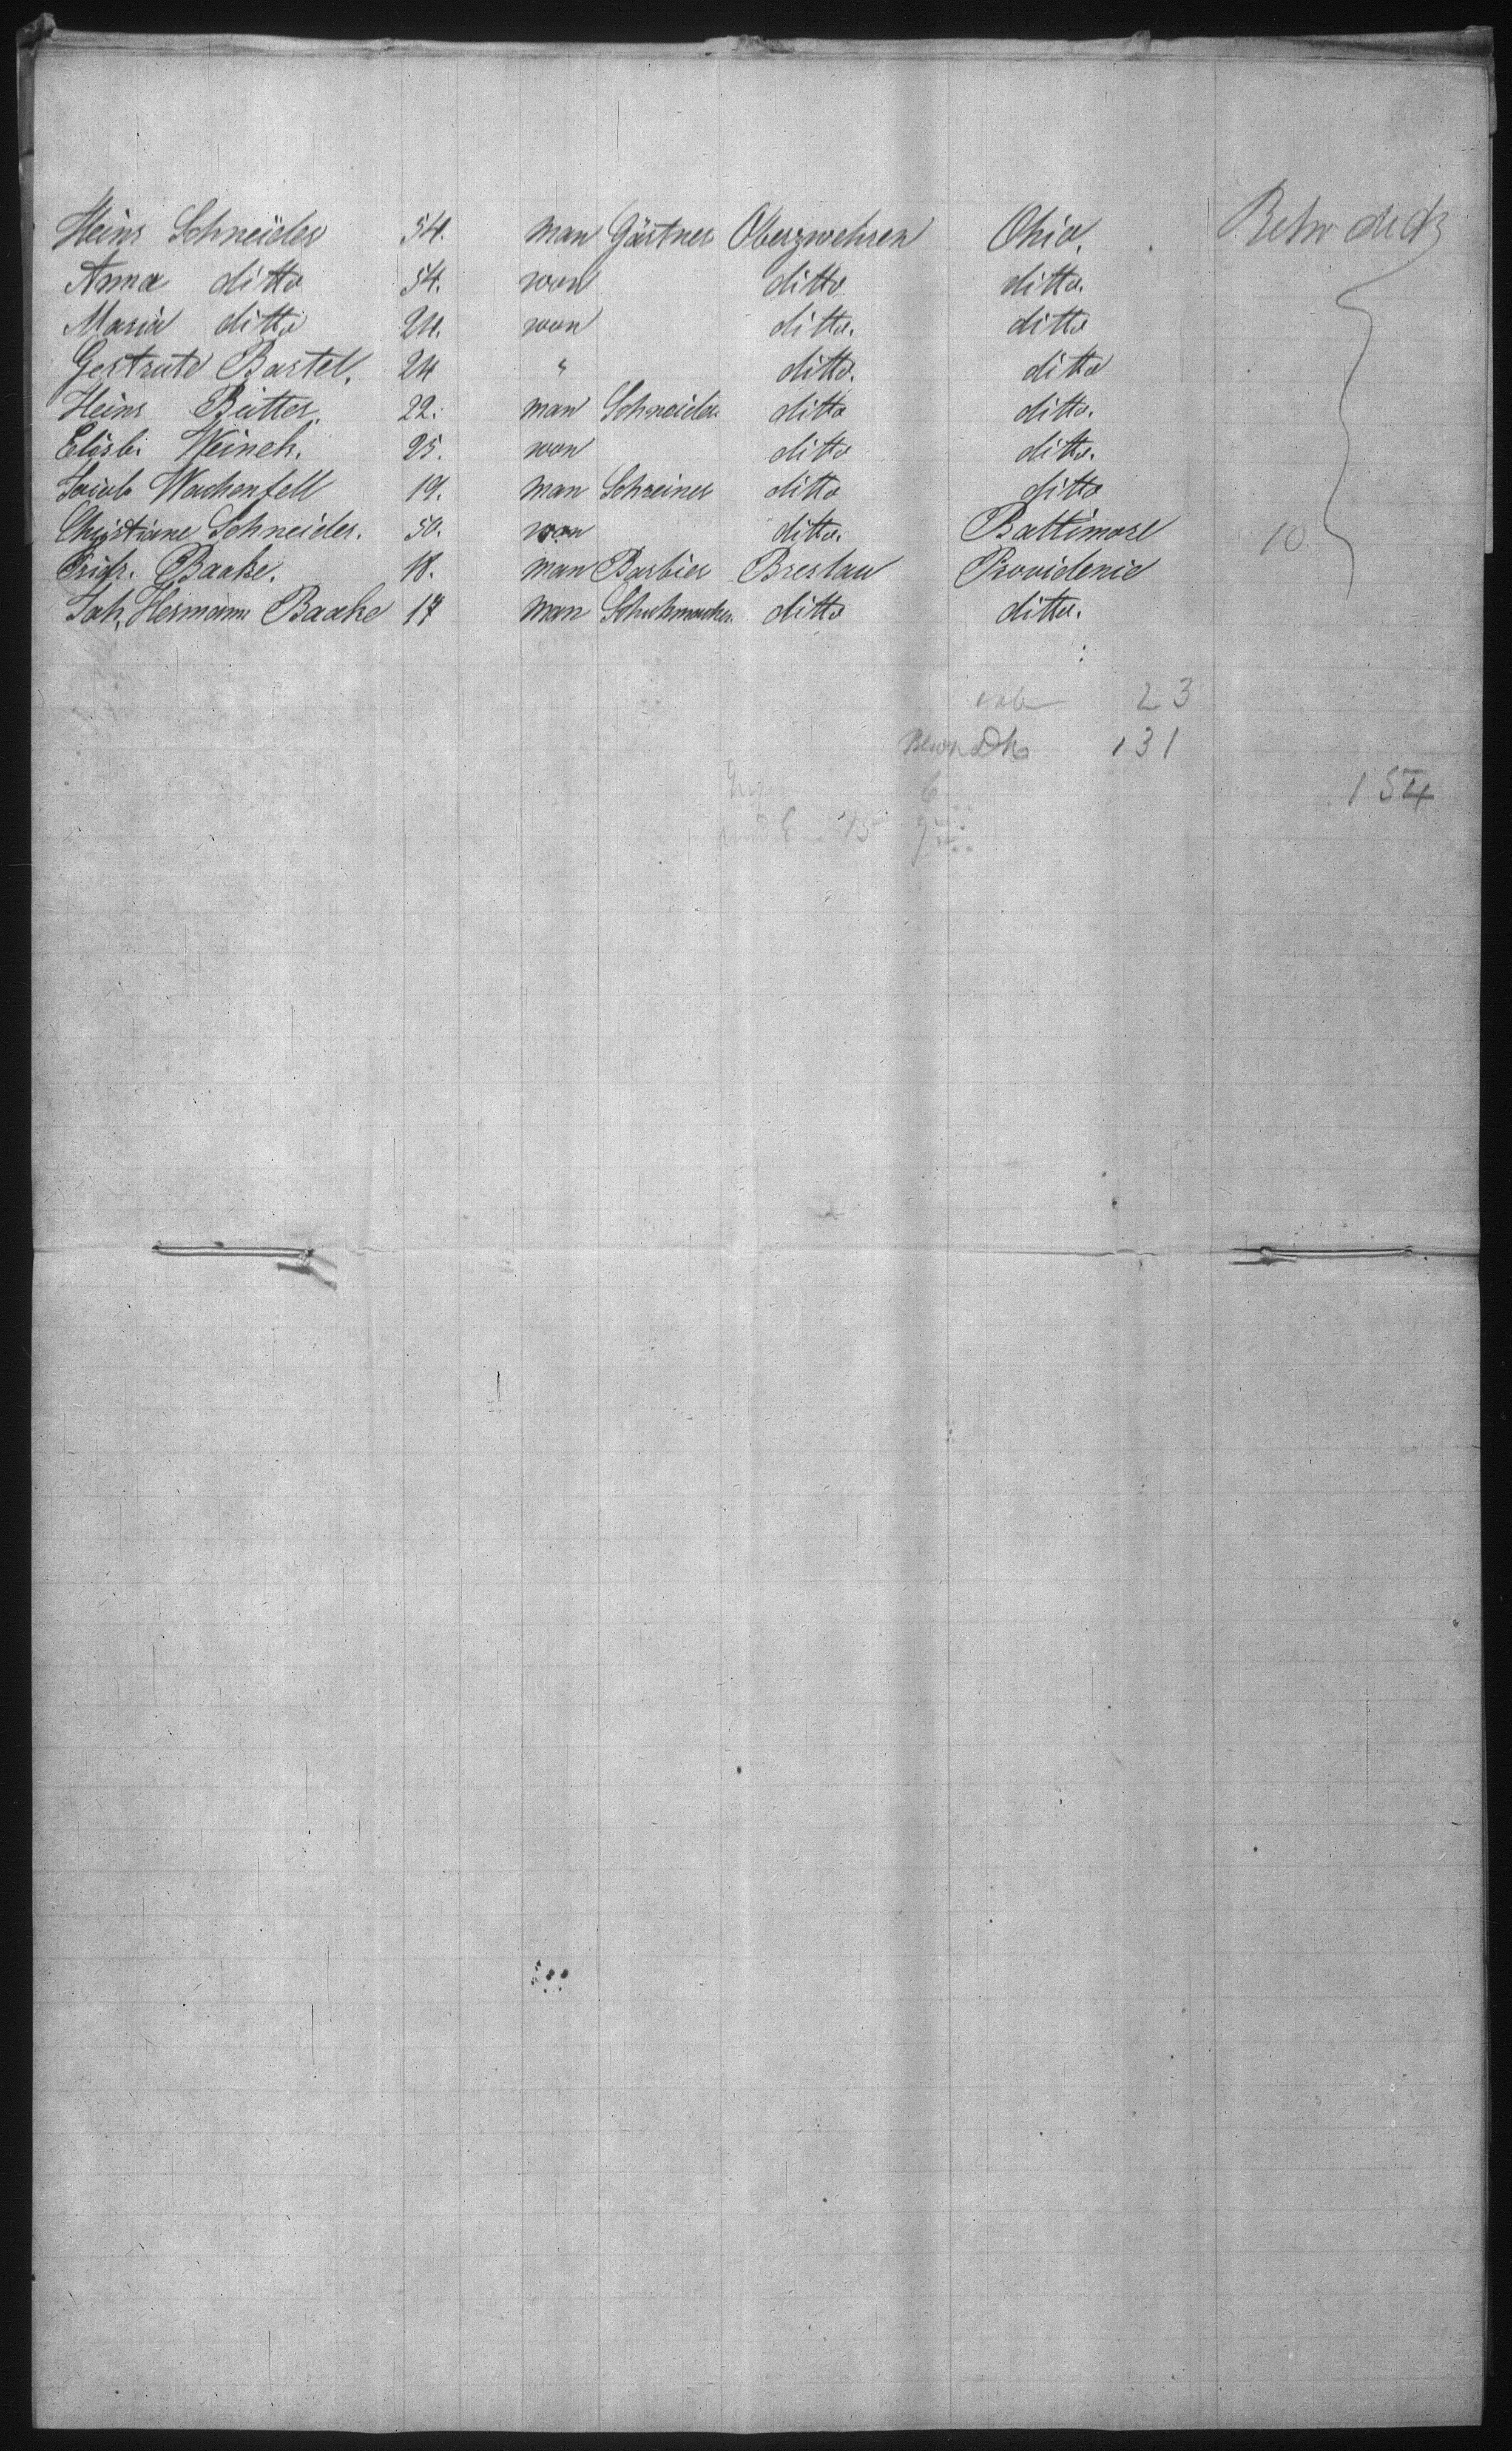 Heinr Schneider 54. man Gärtner Oberzwehren Ohio. Betw decks
Anna ditto 54. wom ditto ditto.
Maria ditto 24. wom ditto. ditto
Gertrute Bartel. 24 " ditto. ditto
Heinr Bütter. 22. man Schneider ditto ditto.
Elisb. Weinch. 25. wom ditto ditto.
Jacob Wachenfell 19. man Schreiner ditto ditto
Christiane Schneider. 50. wom ditto. Baltimore 10.
Friedr. Baake. 18. man Barbier Breslau Providence
Joh. Hermann Baake 17 man Schuhmacher. ditto ditto.
cab 23
131
154